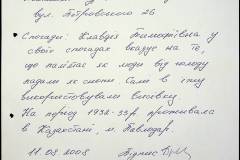 вул. Петровского 26
Спогади: Клавдія Тимофіївна у
своїх спогадах вказує на те,
що пам'ятає як люди від голоду
падали як снопи. Самі в їжу
використовували висівку
На період 1932-33р. проживала
в Казахстані, м. Павлодар.
11.08.2008 Підпис